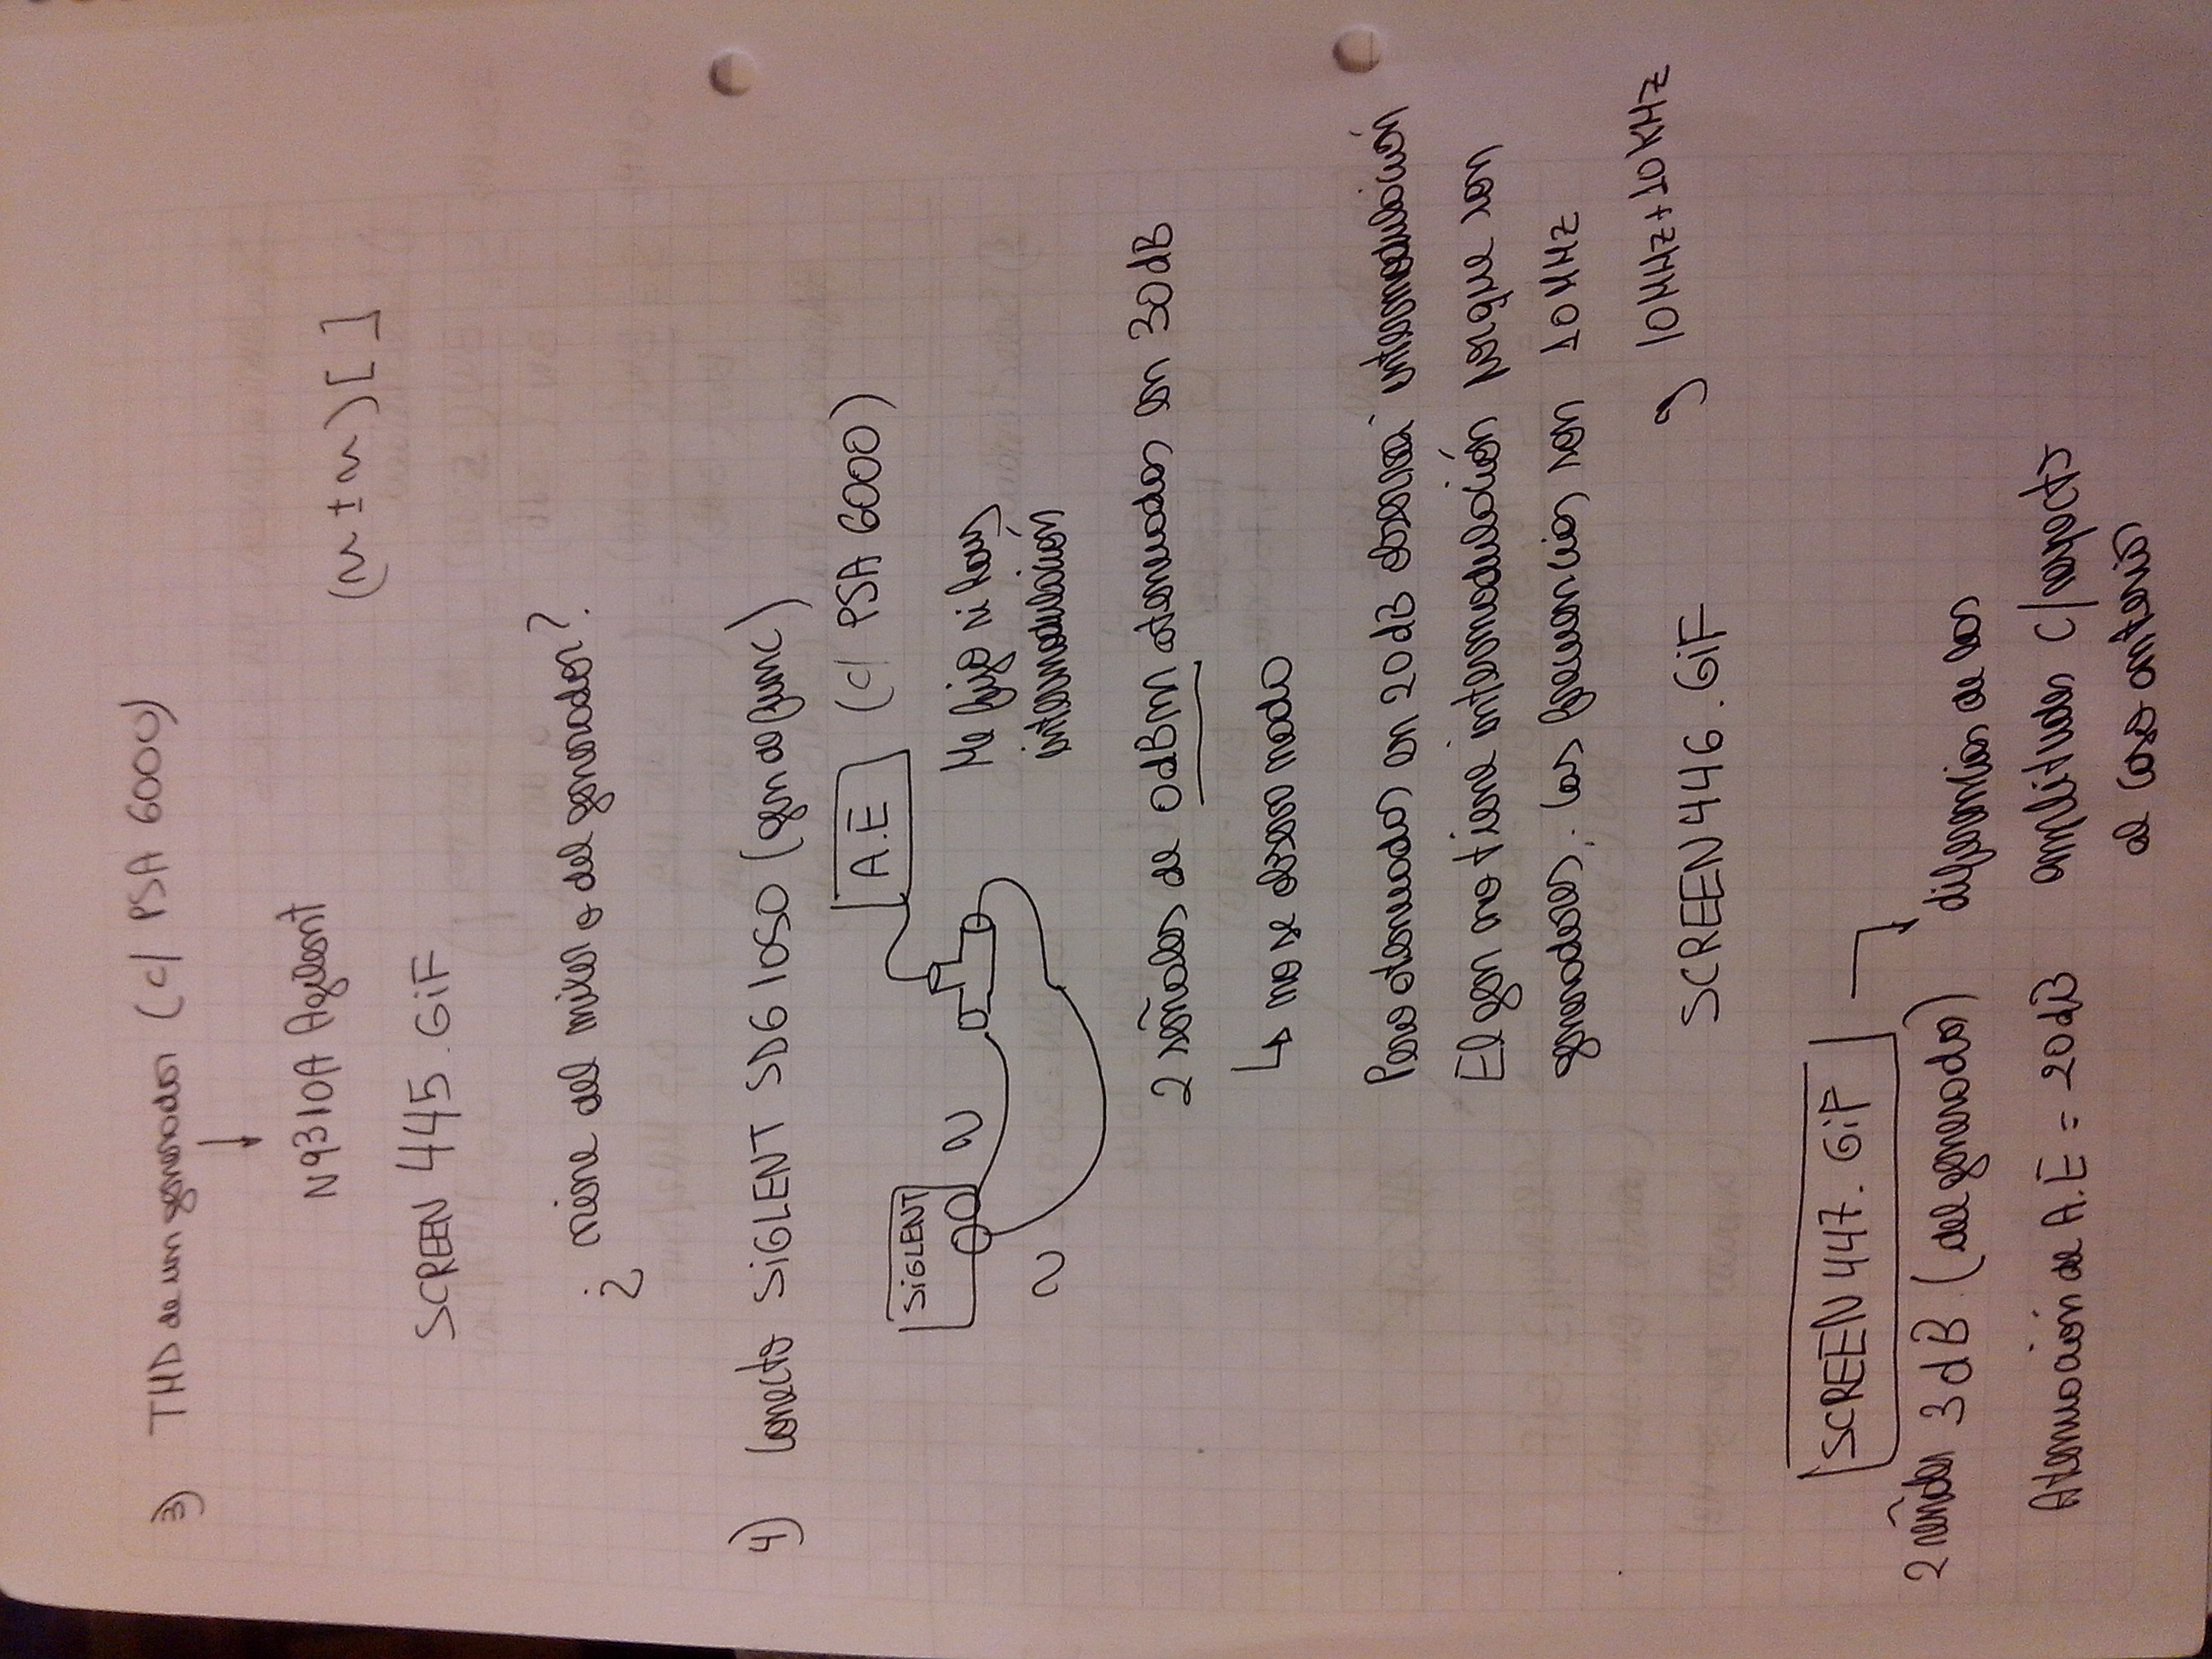 3) THD de un generador (c/ PSA 6000)
N9310A Agilent
(m ± n) [ ]
SCREEN 445.GiF
¿ viene del mixer o del generador?
4) Conecto SiGLENT SDG 1050 (gen de func)
SiGLENT
A.E (c/ PSA 6000)
Me fijo si hay
intermodulación
2 señales de 0dBm atenuados en 30dB
↳ no se observa nada
Pero atenuador en 20dB intermodulación
El gen no tiene intermodulación porque son
generadores. Las frecuencias son 10 MHz
y 10MHz+10KHz
SCREEN446.GiF
SCREEN 447.GiF
2 señales 3dB (del generador)
diferencias de las
amplitudes c/ respecto
al caso anterior
Atenuación de A.E = 20dB